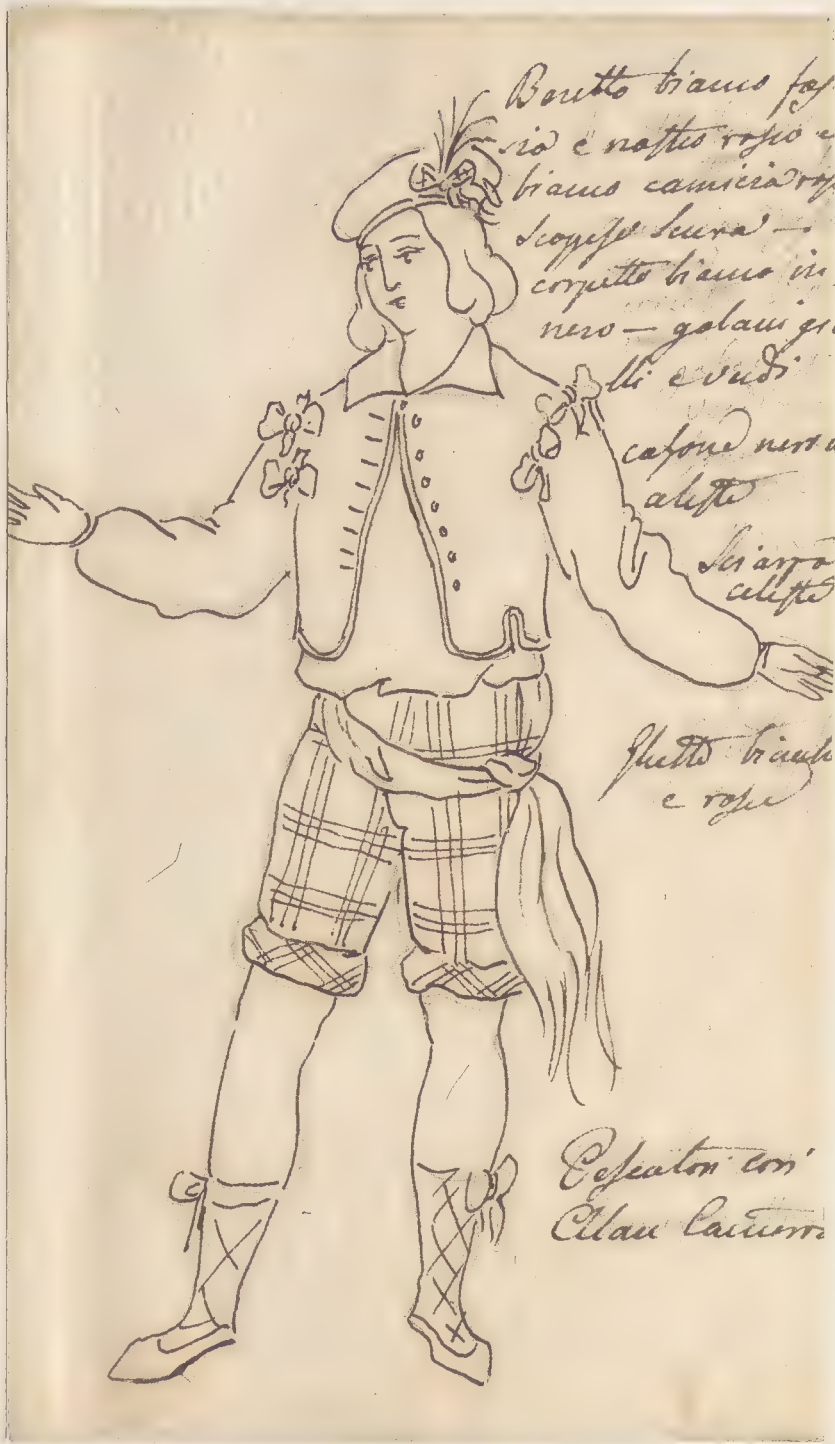 Beretto bianco fas
sia e nastro rosso e
bianco camicia ros
scopese scura —
corpetto bianco in
nero — galani gia
lli e verdi
calsone nero
celeste
Sciarpa
celeste
Ghette bianch
e rosse
Pescatori cori
Allan Camero